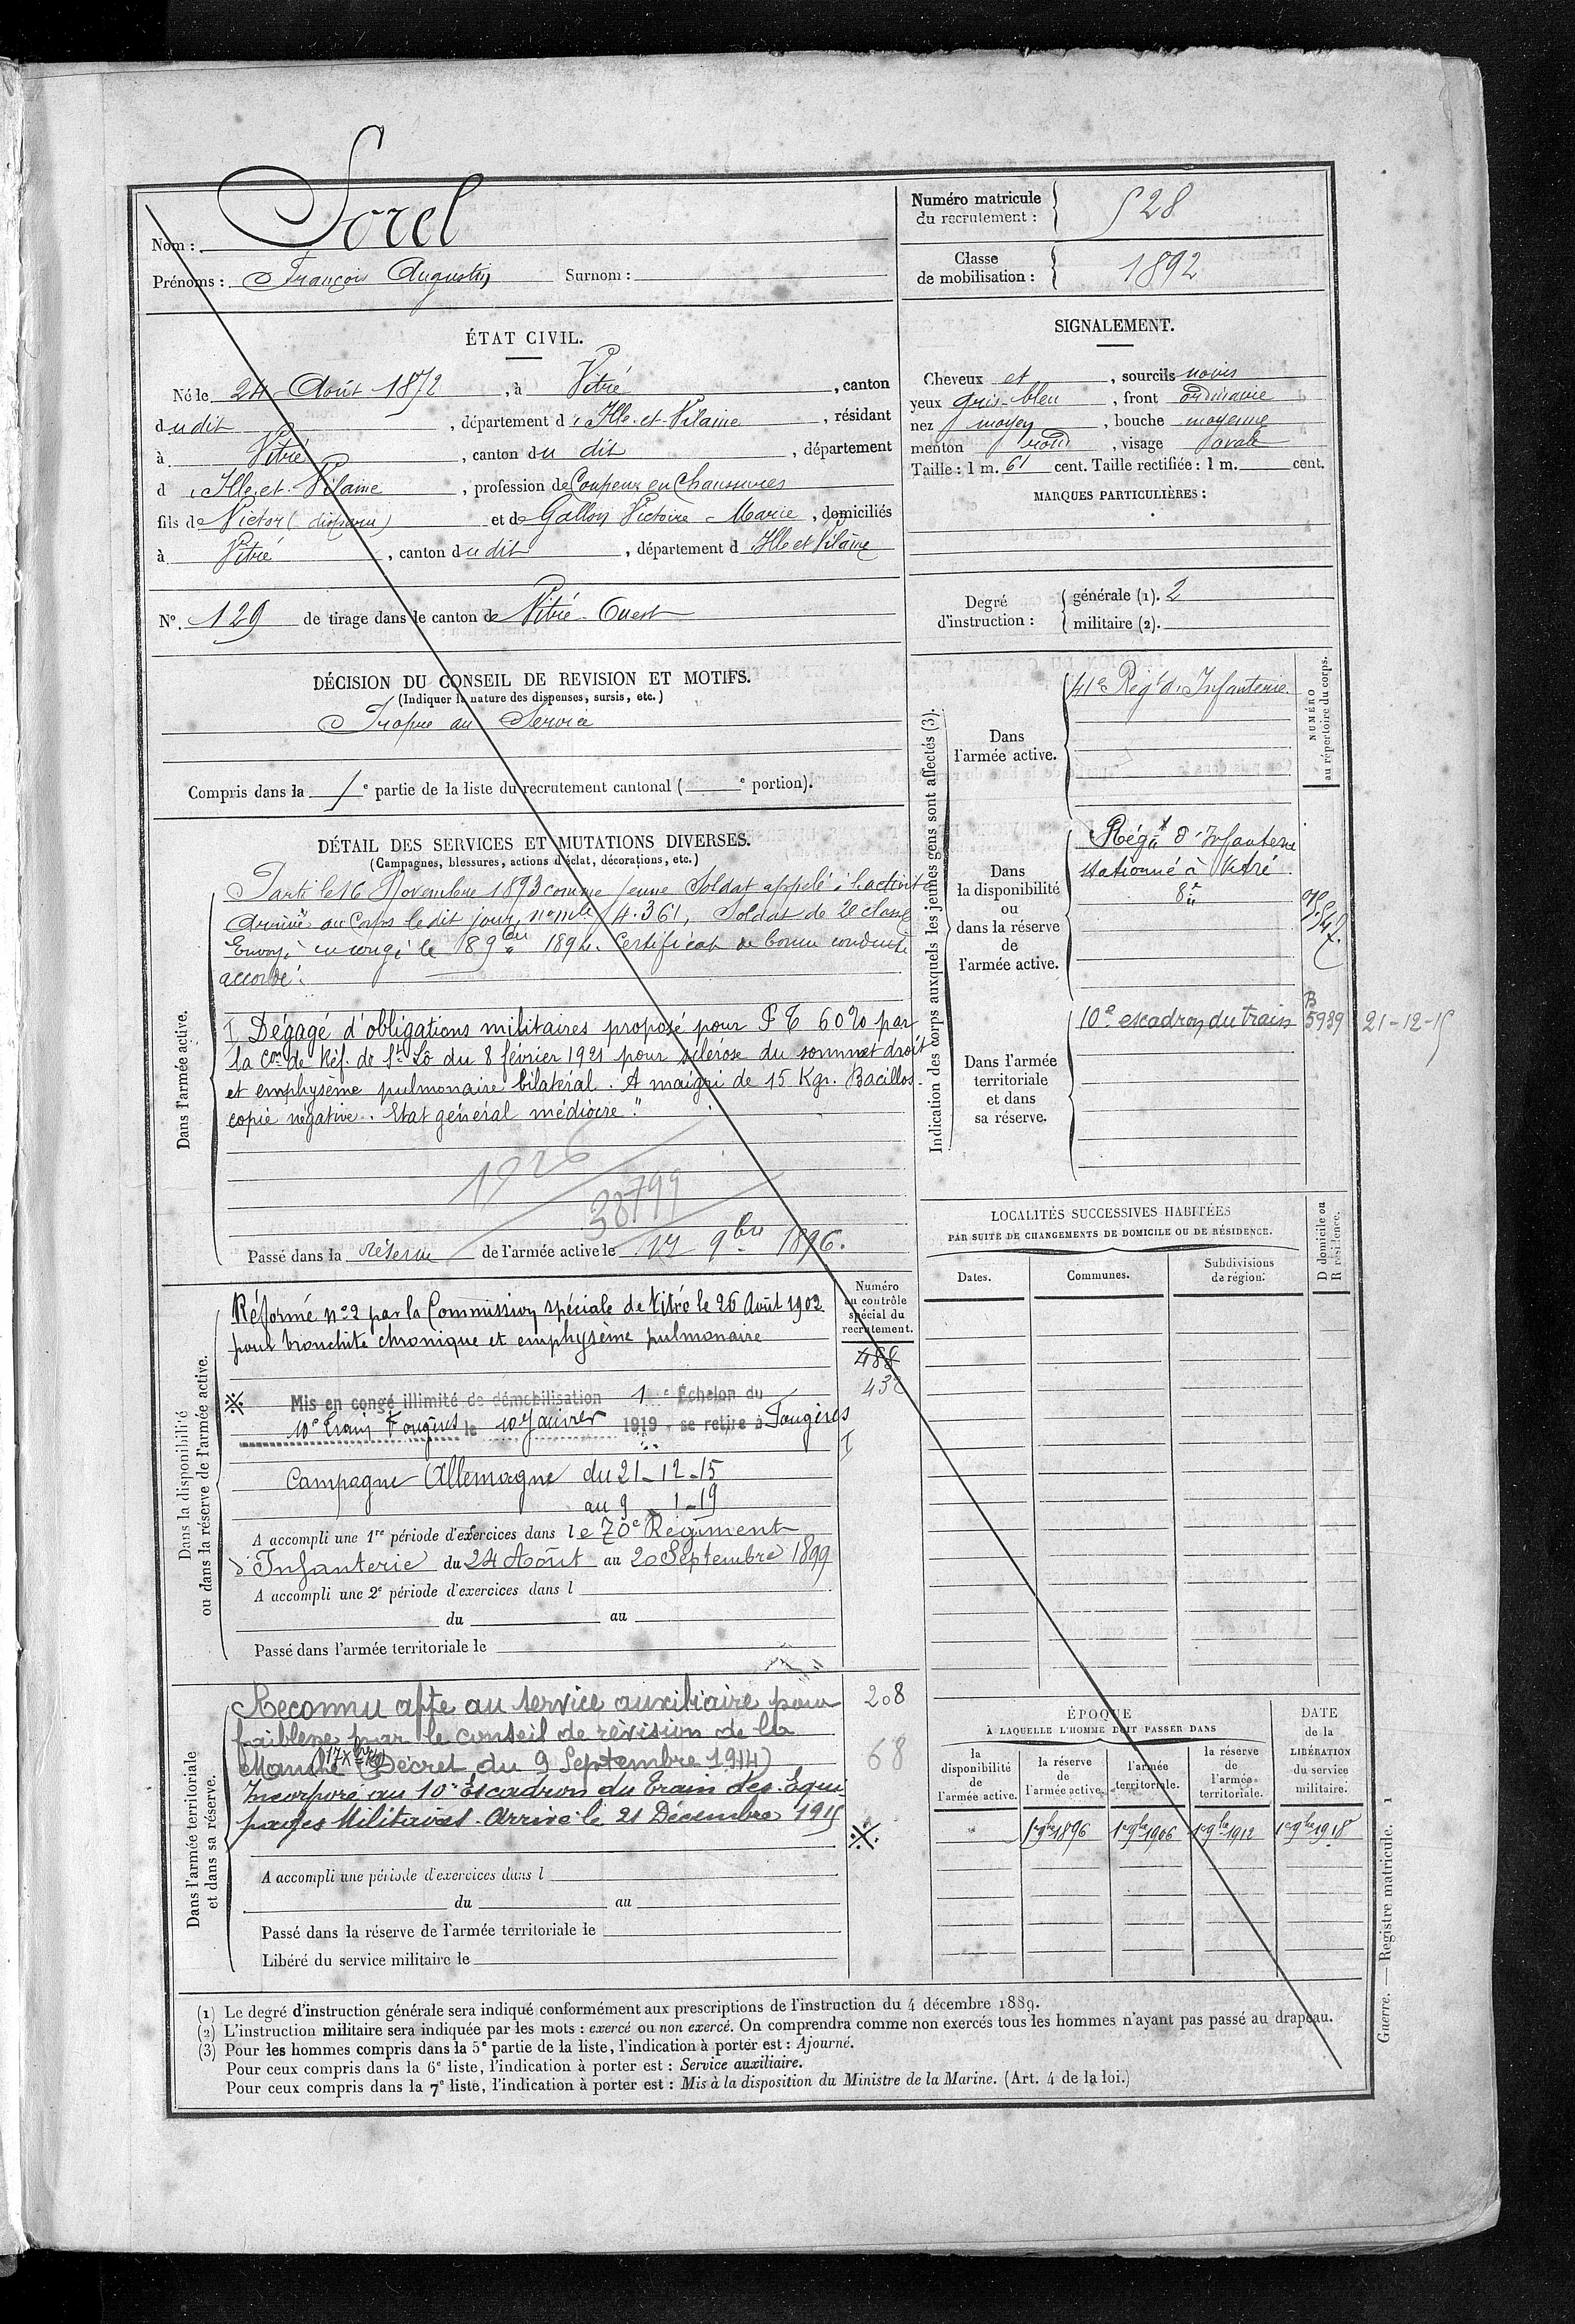 Nom : Sorel
Prénoms : François Augustin Surnom :
Numéro matricule du recrutement : 528
Classe de mobilisation : 1892
ÉTAT CIVIL.
Né le 24 Août 1872, à Vitré, canton
dudit, département d'Ille-et-Vilaine, résidant
à Vitré, canton du dit, département
d'Ille-et-Vilaine, profession de Coupeur en Chaussures
fils de Victor (disparu) et de Gallon Victoire-Marie, domiciliés
à Vitré, canton dudit, département d Ille et Vilaine
N°. 129 de tirage dans le canton de Vitré-Ouest
DÉCISION DU CONSEIL DE REVISION ET MOTIFS.
(Indiquer la nature des dispenses, sursis, etc.)
Propre au Service
Compris dans la 1e partie de la liste du recrutement cantonal ( e portion).
SIGNALEMENT.
Cheveux et, sourcils noirs
yeux gris-bleu, front ordinaire
nez moyen, bouche moyenne
menton rond, visage ovale
Taille : 1 m. 61 cent. Taille rectifiée : 1 m. cent.
MARQUES PARTICULIÈRES :
Degré d'instruction : générale (1). 2
militaire (2).
DÉTAIL DES SERVICES ET MUTATIONS DIVERSES.
(Campagnes, blessures, actions d'éclat, décorations, etc.)
Dans l'armée active.
Parti le 16 Novembre 1893 comme jeune Soldat appelé à l'activité
Arrivé au Corps le dit jour, n° mle 4.361, Soldat de 2e classe
Envoyé en congé le 18 9bre 1894. Certificat de bonne conduite
accordé.
I Dégagé d'obligations militaires proposé pour P T 60% par
la Con de Réf. de St Lô du 8 février 1921 pour sclérose du sommet droit
et emphysème pulmonaire bilatéral. A maigri de 15 Kgr. Bacillos-
copie négative. Etat général médiocre."
1926
38799
Passé dans la réserve de l'armée active le 1er 9bre 1896.
Dans la disponibilité ou dans la réserve de l'armée active.
Numéro au contrôle spécial du recrutement.
Réformé n°2 par la Commission spéciale de Vitré le 26 Août 1902
pour bronchite chronique et emphysème pulmonaire
488
Mis en congé illimité de démobilisation 1e Échelon du
10e Train Fougères le 10 Janvier 1919 - se retire à Fougères
I
Campagne Allemagne du 21-12-15
au 9-1-19
A accompli une 1re période d'exercices dans le 70e Régiment
d'Infanterie du 24 Août au 20 Septembre 1899
A accompli une 2e période d'exercices dans l
du au
Passé dans l'armée territoriale le
Dans l'armée territoriale et dans sa réserve.
Reconnu apte au service auxiliaire pour 208
faiblesse par le conseil de révision de la
Manche (Décret du 9 Septembre 1914) 68
Incorporé au 10e Escadron du Train des Équi-
pages Militaires. Arrivé le 21 Décembre 1915
A accompli une période d'exercices dans l
du au
Passé dans la réserve de l'armée territoriale le
Libéré du service militaire le
Indication des corps auxquels les jeunes gens sont affectés (3).
NUMÉRO au répertoire du corps.
Dans l'armée active.
41e Régt d'Infanterie
Dans la disponibilité ou dans la réserve de l'armée active.
Régt d'Infanterie
stationné à Vitré
Dans l'armée territoriale et dans sa réserve.
10e escadron du train B 5939 21-12-15
LOCALITÉS SUCCESSIVES HABITÉES
PAR SUITE DE CHANGEMENTS DE DOMICILE OU DE RÉSIDENCE.
Dates. Communes. Subdivisions de région. D domicile ou R résidence.
ÉPOQUE
À LAQUELLE L'HOMME DOIT PASSER DANS
la disponibilité de l'armée active. la réserve de l'armée active. l'armée territoriale. la réserve de l'armée territoriale. DATE de la LIBÉRATION du service militaire.
1er 9bre 1896 1er 9bre 1906 1er 9bre 1912 1er 9bre 1918
(1) Le degré d'instruction générale sera indiqué conformément aux prescriptions de l'instruction du 4 décembre 1889.
(2) L'instruction militaire sera indiquée par les mots : exercé ou non exercé. On comprendra comme non exercés tous les hommes n'ayant pas passé au drapeau.
(3) Pour les hommes compris dans la 5e partie de la liste, l'indication à porter est : Ajourné.
Pour ceux compris dans la 6e liste, l'indication à porter est : Service auxiliaire.
Pour ceux compris dans la 7e liste, l'indication à porter est : Mis à la disposition du Ministre de la Marine. (Art. 4 de la loi.)
Guerre. — Registre matricule. 1